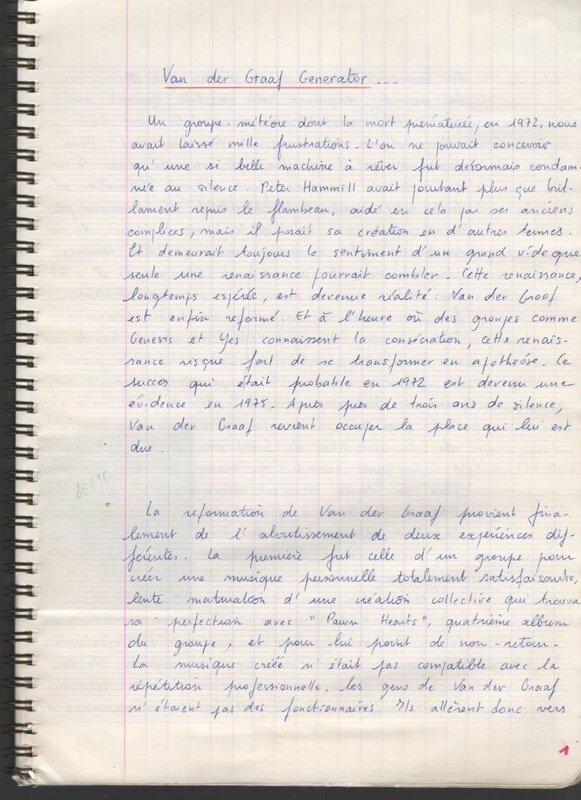 Van der Graaf Generator...
Un groupe-météore dont la mort prématurée, en 1972, nous
avait laissé mille frustrations. L'on ne pouvait concevoir
qu'une si belle machine à rêver fût désormais condam-
née au silence. Peter Hammill avait pourtant plus que bril-
lament repris le flambeau, aidé en cela par ses anciens
complices, mais il posait sa création en d'autres termes.
Et demeurait toujours le sentiment d'un grand vide que
seule une renaissance pourrait combler. Cette renaissance,
longtemps espérée, est devenue réalité: Van der Graaf
est enfin reformé. Et à l'heure où des groupes comme
Genesis et Yes connaissent la consécration, cette renais-
sance risque fort de se transformer en apothéose. Ce
succès qui était probable en 1972 est devenu une
évidence en 1975. Après près de trois ans de silence,
Van der Graaf revient occuper la place qui lui est
due.
La reformation de Van der Graaf provient fina-
lement de l'aboutissement de deux expériences dif-
férentes. La première fut celle d'un groupe pour
créer une musique personnelle totalement satisfaisante,
lente maturation d'une création collective qui trouva
sa perfection avec "Pawn Hearts", quatrième album
du groupe, et pour lui point de non-retour.
La musique créée n'était pas compatible avec la
répétition professionnelle, les gens de Van der Graaf
n'étaient pas des fonctionnaires. Ils allèrent donc vers
1